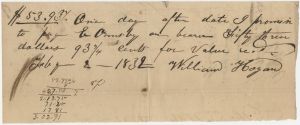 $53.93¾ One day after date I promise
to pay to Ormsby or bearer Fifty three
dollars 93¾ cents for value recd.
Feby 2 - 1832 William Hogan